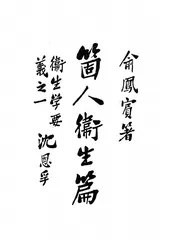 俞鳳賓著
箇人衞生篇
衞生學要
義之一
沈恩孚